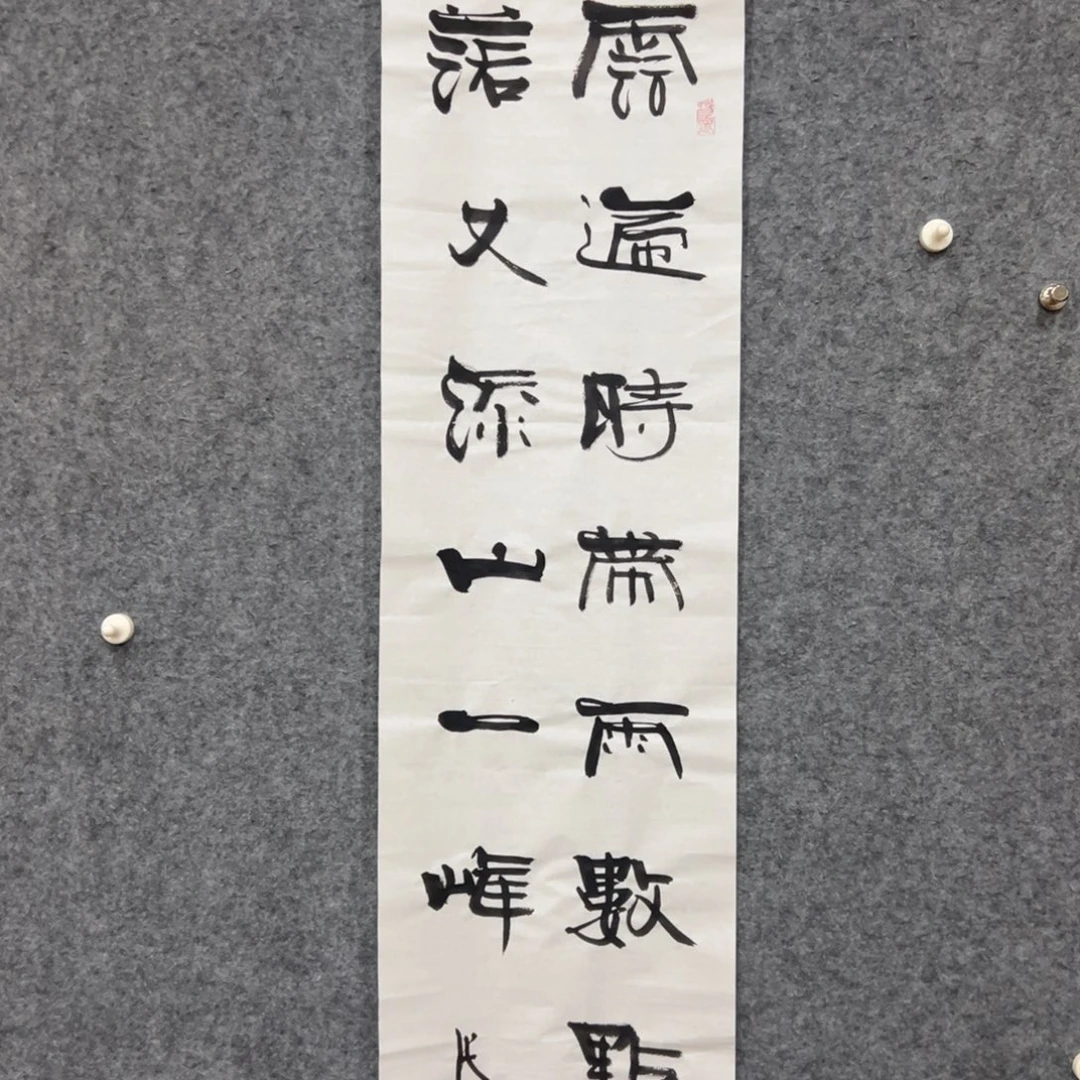 雲過時帶雨數點
落又添山一峰